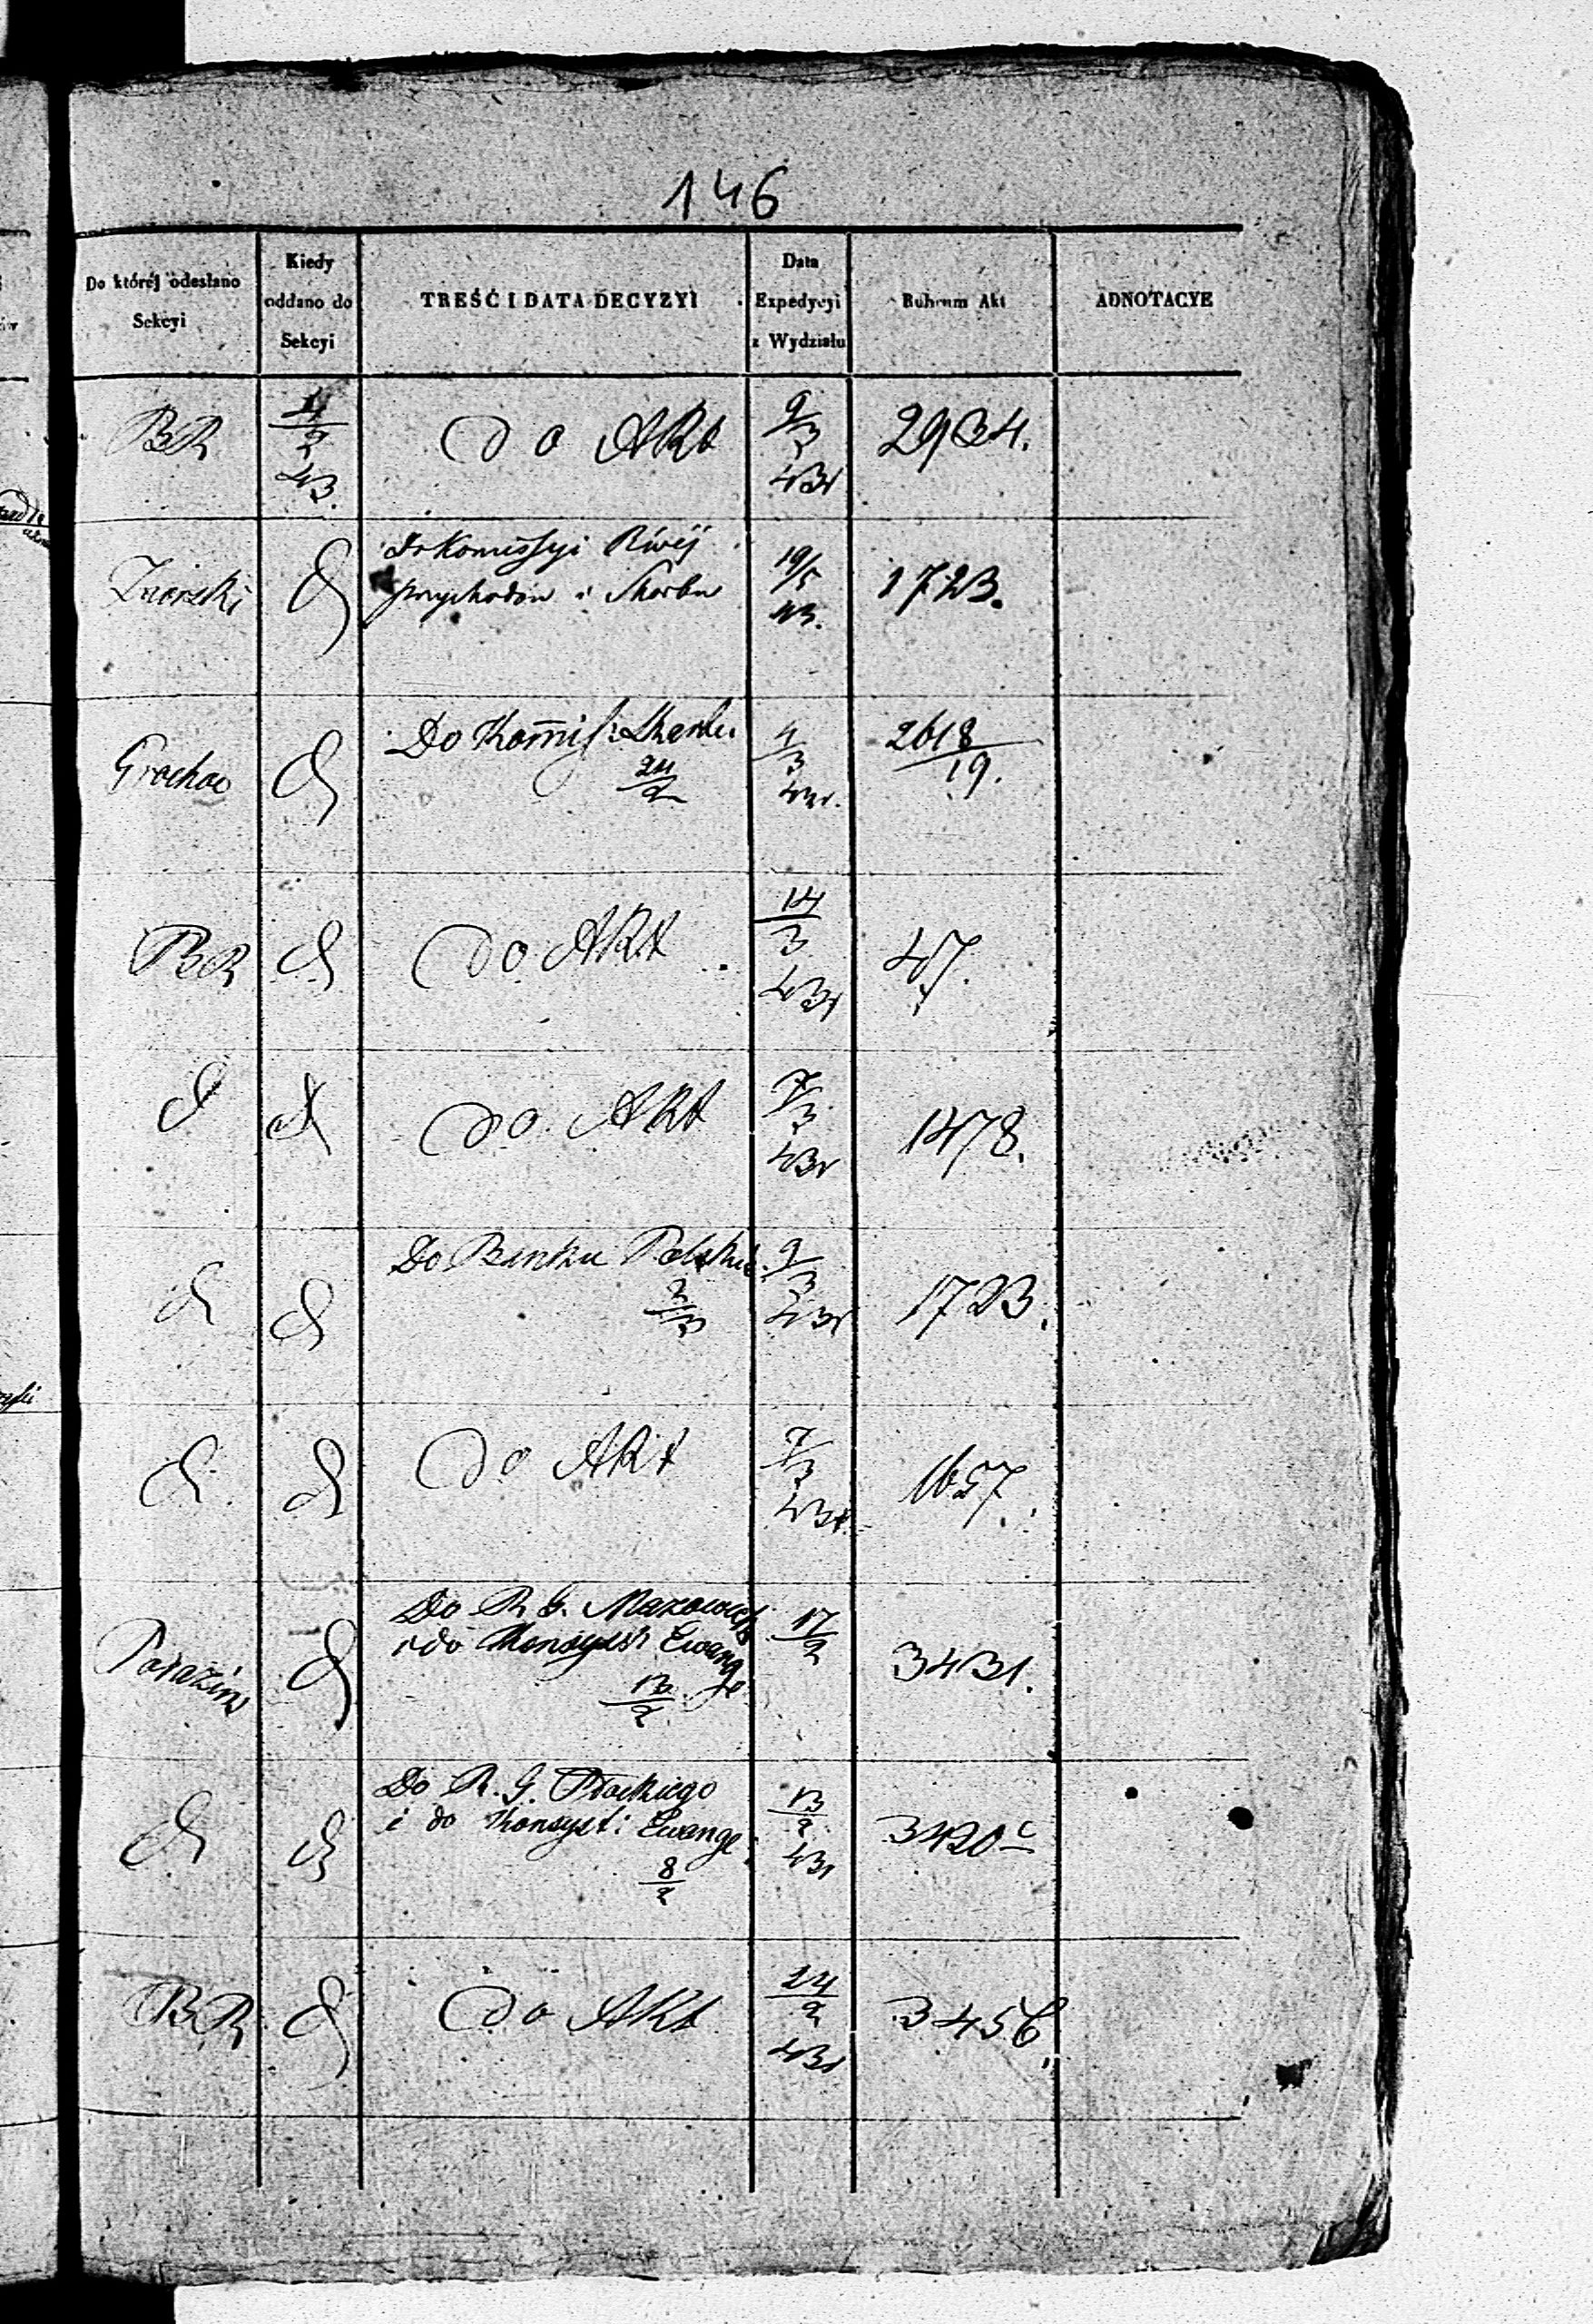 146
Do której odesłano
Sekcyi
Kiedy
oddano do
Sekcyi
TREŚĆ I DATA DECYZYI
Data
Expedycyi
z Wydziału
Rubrum Akt
ADNOTACYE
BR
11/2
43.
Do Akt
9/3
431
2934.
Do Komissyi Rwéj
przychodów i Skarbu
19/5
43.
1723.
Grochow
Do Kommis: Skarbu
24/2
4/3
431.
2618/19.
BR
Do Akt
14/3
431
47.
Do Akt
7/3
431
1478.
Do Banku Polskie
3/3
9/3
431
1723.
Do Akt
7/3
431
1657.
Do R. G. Mazowieck
i do Konsyst: Ewange
13/2
17/2
3431.
Do R. G. Płockiego
i do Konsyst: Ewange
8/2
13/2
431
3420c
BR
Do Akt
24/2
431
3456.